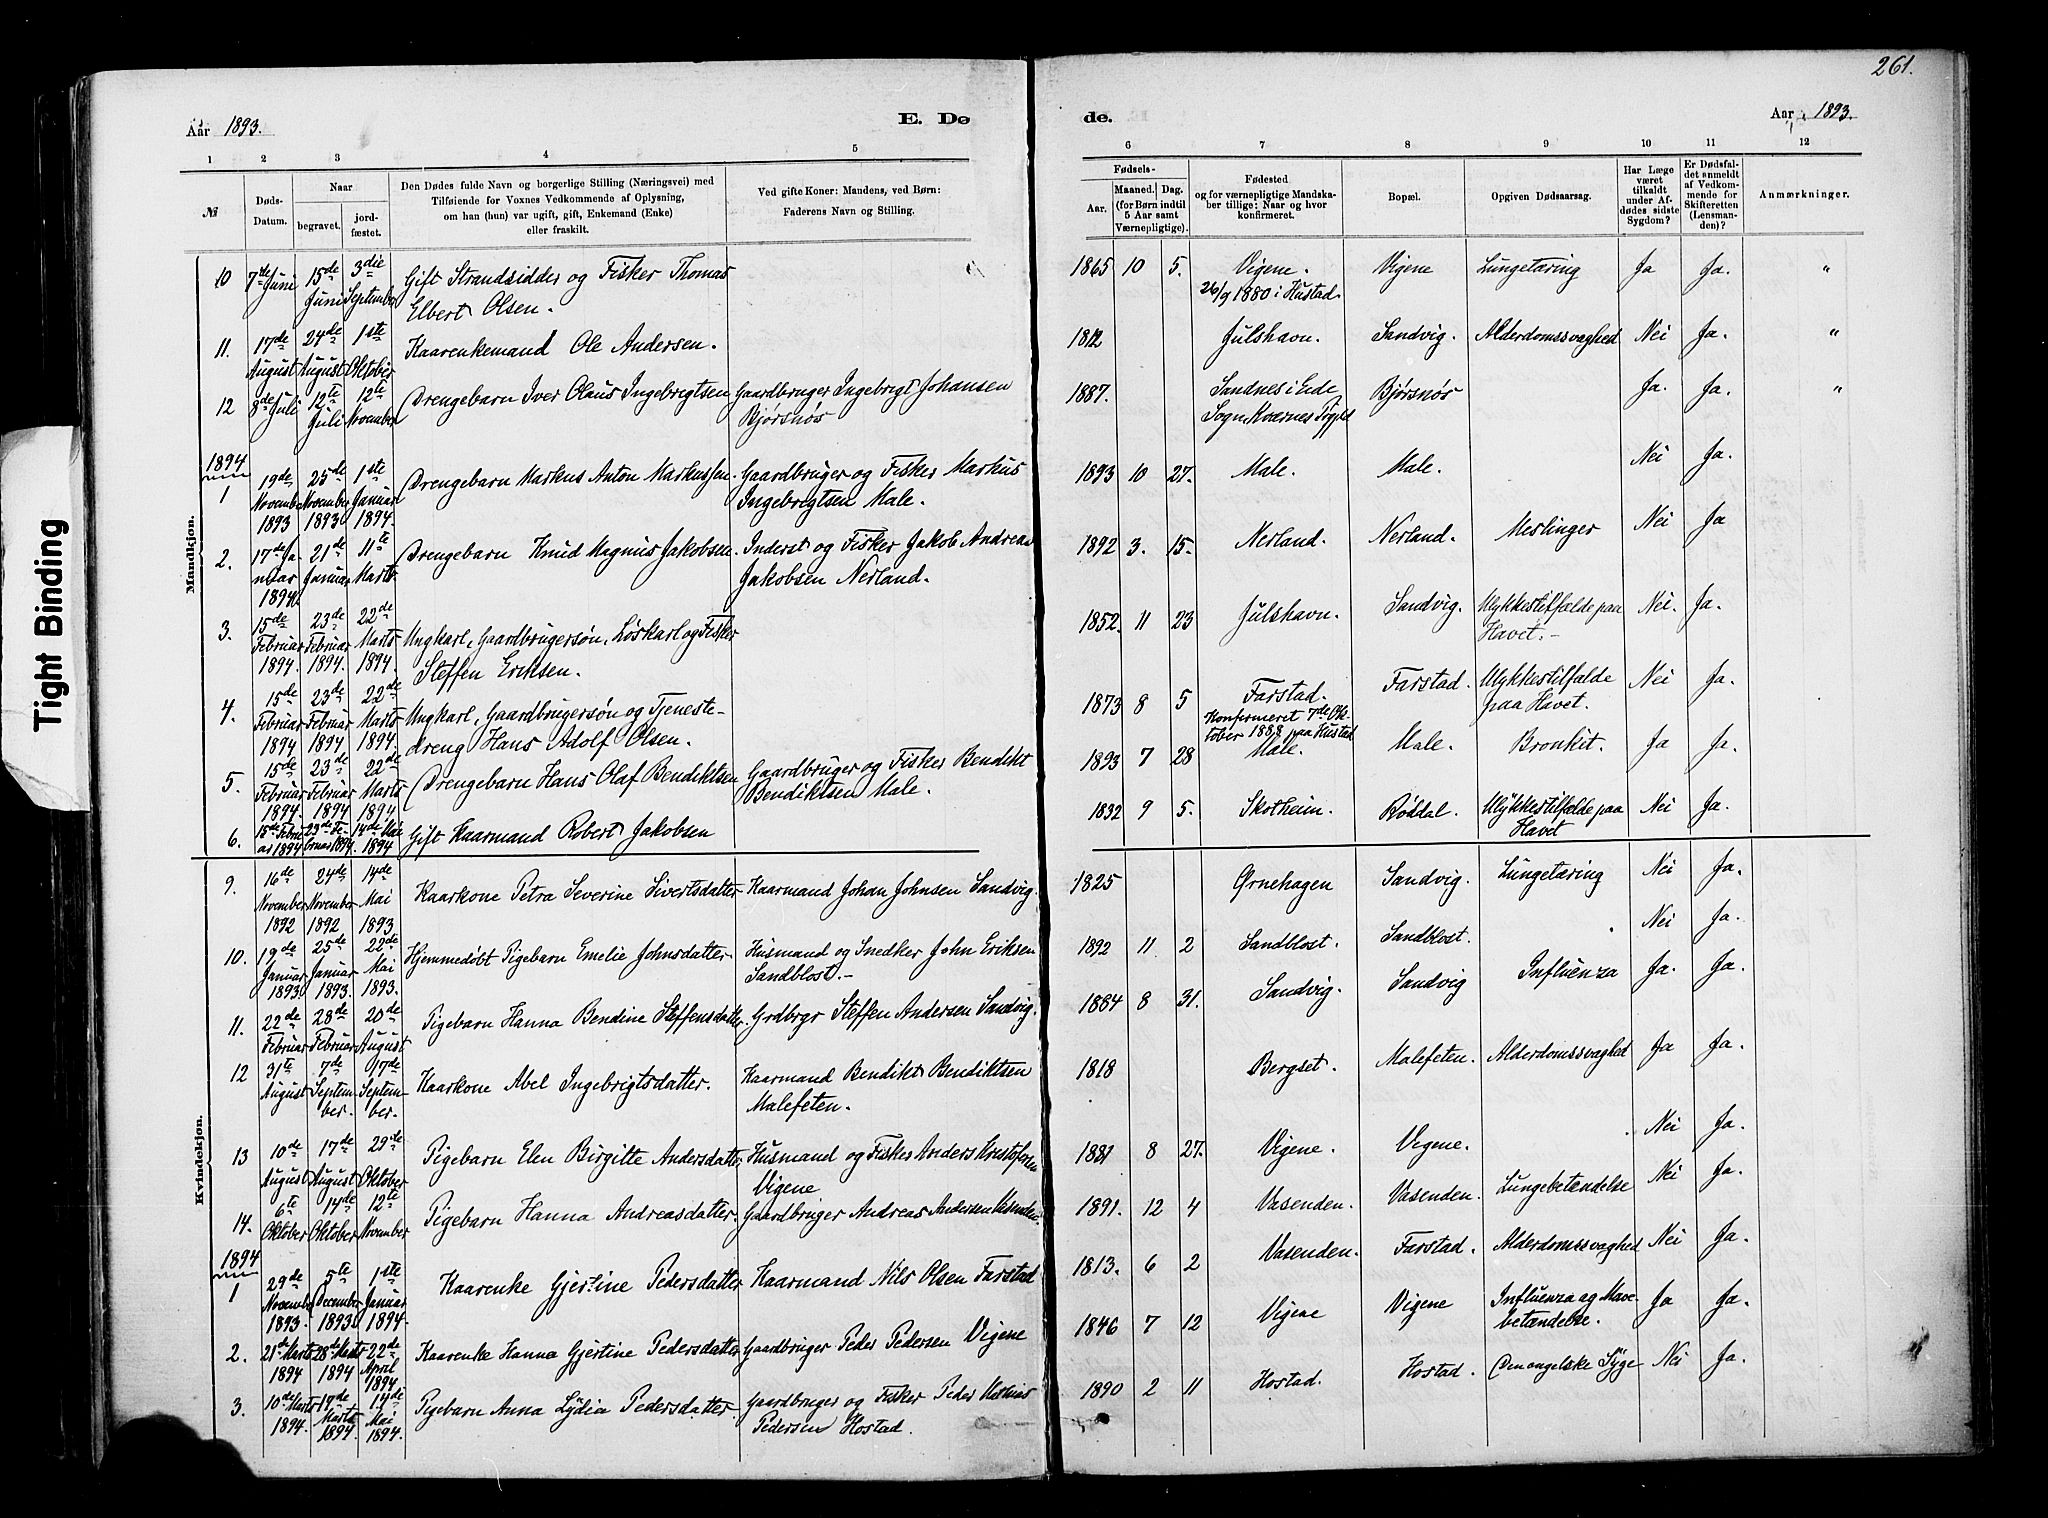 261.
Aar 1893.
E. Dø
de.
Aar 1893.
1 2 3 4 5
6 7 8 9 10 11 12
№
Døds-
Datum.
Naar
begravet.
jord-
fæstet.
Den Dødes fulde Navn og borgerlige Stilling (Næringsvei) med
Tilføiende for Voxnes Vedkommende af Oplysning,
om han (hun) var ugift, gift, Enkemand (Enke)
eller fraskilt.
Ved gifte Koner: Mandens, ved Børn:
Faderens Navn og Stilling.
Fødsels-
Aar.
Maaned. Dag.
(for Børn indtil
5 Aar samt
Værnepligtige).
Fødested
og for værnepligtige Mandska-
ber tillige: Naar og hvor
konfirmeret.
Bopæl.
Opgiven Dødsaarsag.
Har Læge
været
tilkaldt
under Af-
dødes sidste
Sygdom?
Er Dødsfal-
det anmeldt
af Vedkom-
mende for
Skifteretten
(Lensman-
den)?
Anmærkninger.
Mandkjøn.
10 7de Juni 15de Juni 3die September Gift Strandsidder og Fisker Thomas
Elbert Olsen.
1865 10 5. Vigene. Vigene Lungetæring Ja Ja. "
26/9 1880 i Hustad.
11. 17de August 24de August 1ste Oktober Kaarenkemand Ole Andersen.
1812 Julshavn. Sandvig. Alderdomssvaghed Nei Ja. "
12 8de Juli 12te Juli 12te November Drengebarn Iver Olaus Ingebrigtsen Gaardbruger Ingebrigt Johansen
Bjørsnøs
1887. Sandnes i Eide Bjørsnøs Ja. Ja. "
Sogn, Kvernes Pgjld
1894
1 19de November 1893 25de November 1893 1ste Januar 1894. Drengebarn Markus Anton Markussen. Gaardbruger og Fisker Markus
Ingebrigtsen Male.
1893 10 27. Male. Male. Nei Ja.
2. 17de Januar 1894 21de Januar 11te Marts Drengebarn Knud Magnus Jakobsen. Inderst og Fisker Jakob Andreas
Jakobsen Nerland.
1892 3. 15. Nerland. Nerland. Meslinger Nei Ja
3. 15de Februar 1894. 23de Februar 1894. 22de Marts 1894. Ungkarl, Gaardbrugersøn, Løskarl og Fisker
Steffen Eriksen.
1852. 11 23 Julshavn. Sandvig. Ulykkestilfælde paa Nei. Ja.
Havet.-
4. 15de Februar 1894 23de Februar 1894 22de Marts 1894. Ungkarl, Gaardbrugersøn og Tjeneste-
dreng Hans Adolf Olsen.
1873 8 5 Farstad. Farstad. Ulykkestilfælde Nei Ja.
paa Havet.
Konfirmeret 7de Ok-
tober 1888 paa Hustad
5. 15de Februar 1894. 23de Februar 1894 22de Marts 1894 Drengebarn Hans Olaf Bendiktsen Gaardbruger og Fisker Bendikt
Bendiktsen Male.
1893 7 28 Male. Male. Bronkit. Ja Ja.
6. 15de Februar 1894 23de Februar 1894. 14de Mai 1894 Gift Kaarmand Robert Jakobsen
1832 9 5. Skotheim. Røddal. Ulykkestilfælde paa Nei Ja.
Havet
Kvindekjøn.
9. 16de November 1892 24de November 1892 14de Mai 1893 Kaarkone Petra Severine Sivertsdatter Kaarmand Johan Johnsen Sandvig.
1825 Ørnehagen Sandvig. Lungetæring Nei Ja.
10. 19de Januar 1893 25de Januar 1893. 22de Mai 1893. Hjemmedøbt Pigebarn Emelie Johnsdatter. Husmand og Snedker John Eriksen
Sandblost.-
1892 11 2 Sandblost. Sandblost. Nei Ja.
11. 22de Februar 28de Februar 20de August Pigebarn Hanna Bendine Steffensdatter. Grdbrgr Steffen Andersen Sandvig.
1884 8 31. Sandvig. Sandvig Influenza Ja. Ja.
12 31te August 7de September. 17de September. Kaarkone Abel Ingebrigtsdatter. Kaarmand Bendikt Bendiktsen
Malefeten.
1818 Bergset. Malefeten. Alderdomssvaghed Ja Ja.
13 10de August 17de August 29de Oktober Pigebarn Elen Birgitte Andersdatter. Husmand og Fisker Anders Kristofersen
Vigene
1881 8 27. Vigene. Vigene. Nei Ja.
14. 6te Oktober 14de Oktober 12te November Pigebarn Hanna Andreasdatter. Gaardbruger Andreas Andersen Vasenden.
1891. 12 4 Vasenden. Vasenden. Lungebetændelse Nei Ja.
1894
1 29de November 1893. 5te December 1893 1ste Januar 1894. Kaarenke Gjertine Pedersdatter Kaarmand Nils Olsen Farstad
1813. 6 2 Vasenden. Farstad. Alderdomssvaghed Nei Ja.
2. 21de Marts 1894 28de Marts 1894 22de April 1894 Kaarenke Hanna Gjertine Pedersdatter Gaardbruger Peder Pedersen Vigene
1846 7 12 Vigene Vigene Influenza og Mave- Ja Ja.
betændelse.
3. 10de Marts 1894. 17de Marts 1894. 14de Mai 1894. Pigebarn Anna Lydia Pedersdatter. Gaardbruger og Fisker Peder Mathias
Pedersen Hostad.
1890 2 11 Hostad. Hostad. Den engelske Syge Nei Ja.
Tight Binding